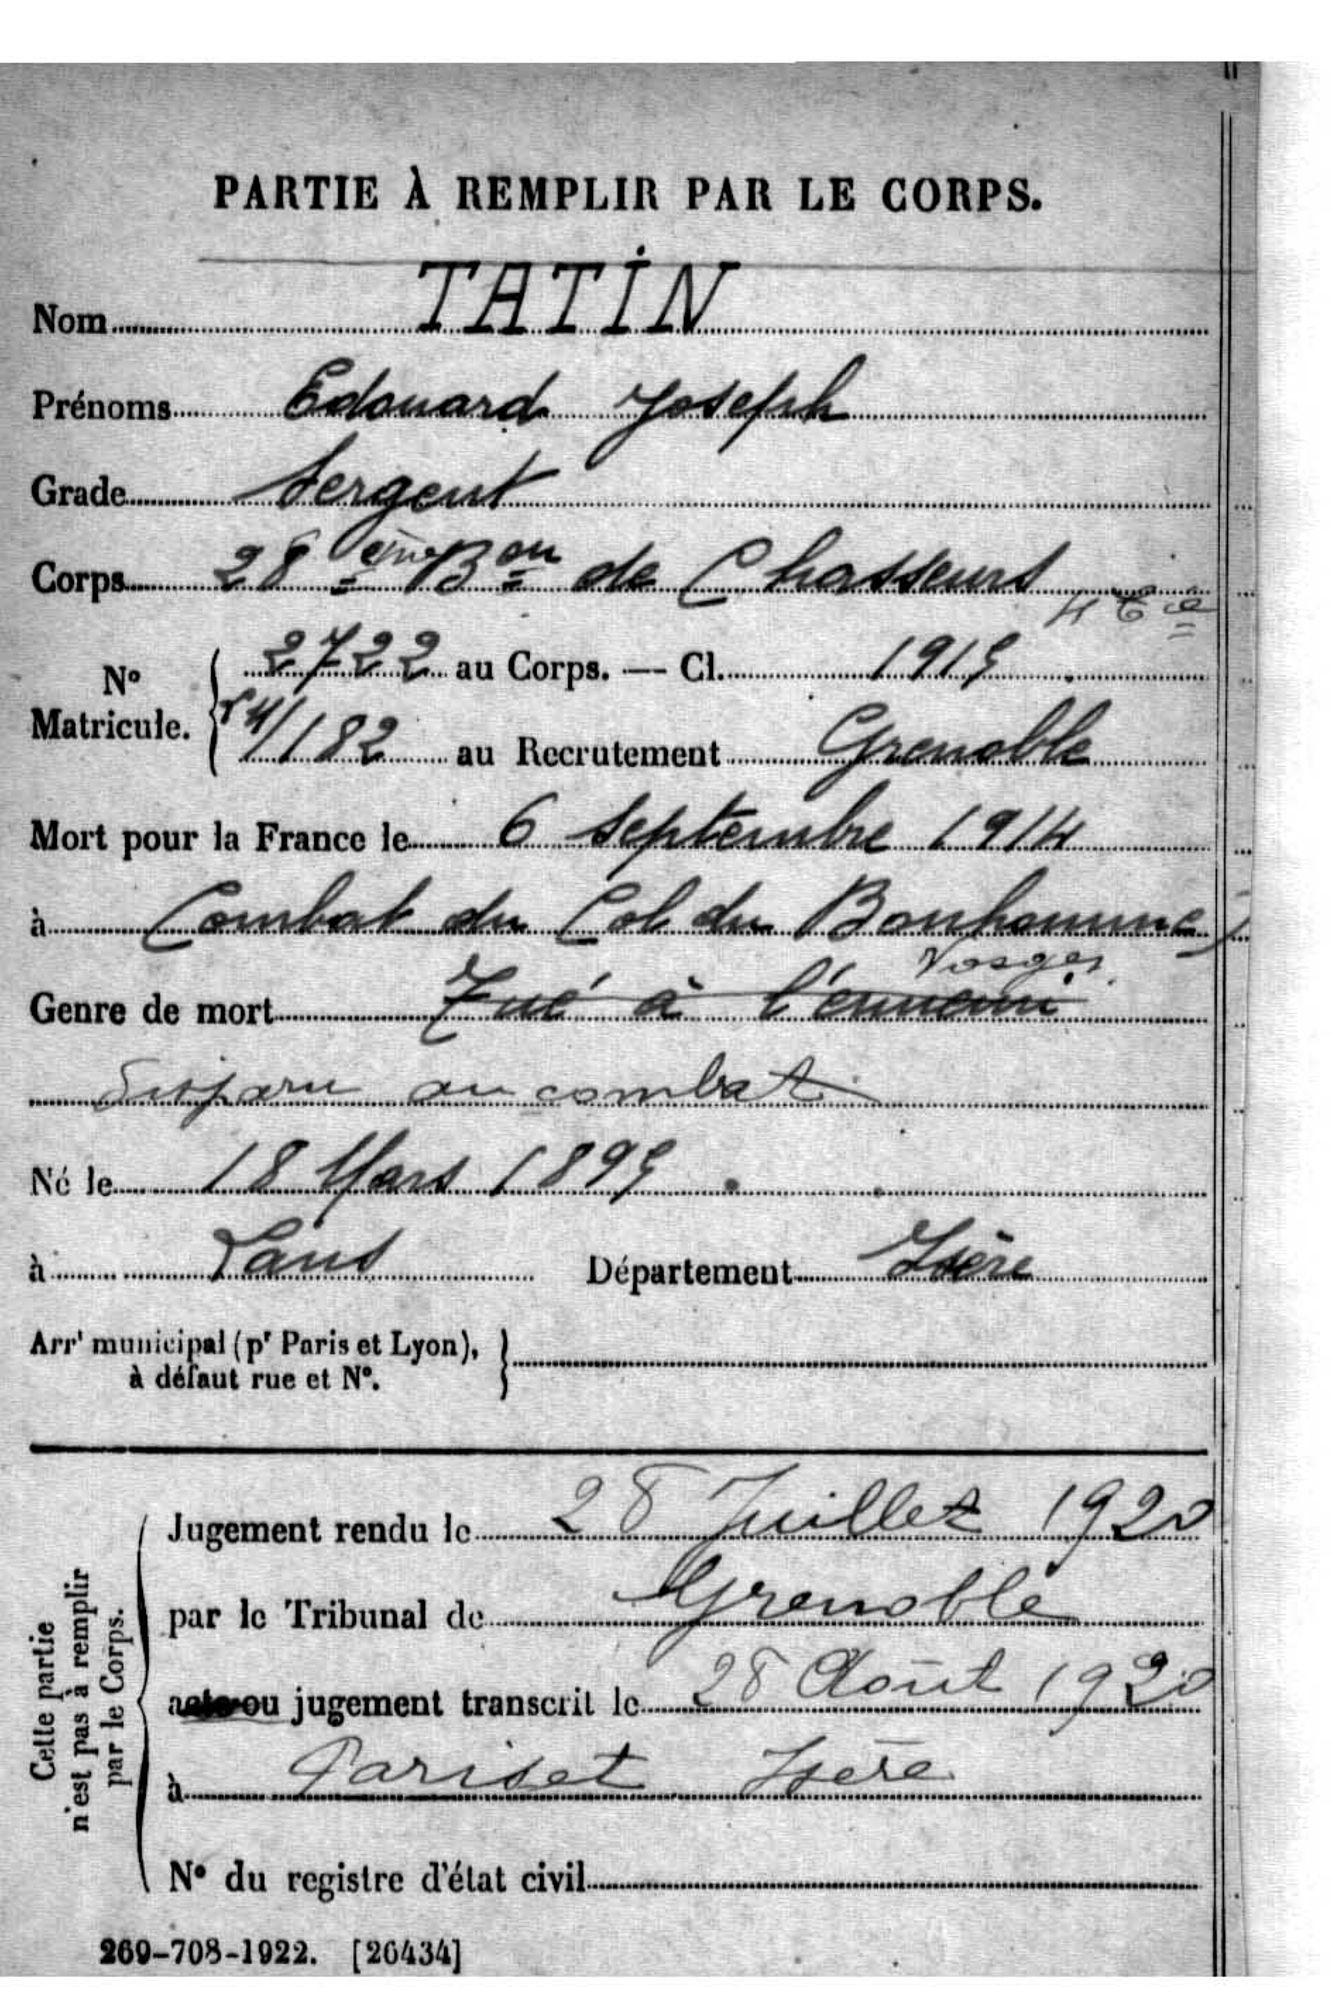 PARTIE À REMPLIR PAR LE CORPS.
Nom TATIN
Prénoms Edouard Joseph
Grade Sergent
Corps 28ème Bon de Chasseurs
N° Matricule. 2722 au Corps. — Cl. 1915
/182 au Recrutement Grenoble
Mort pour la France le 6 Septembre 1914
à Combat du Col du Bonhomme
Vosges
Genre de mort Tué à l'ennemi
Disparu au combat
Né le 18 Mars 1895
à Lans Département Isère
Arrt municipal (pr Paris et Lyon),
à défaut rue et N°.
Cette partie
n'est pas à remplir
par le Corps.
Jugement rendu le 28 Juillet 1920
par le Tribunal de Grenoble
acte ou jugement transcrit le 28 Août 1920
à Pariset Isère
N° du registre d'état civil
269-708-1922. [26434]